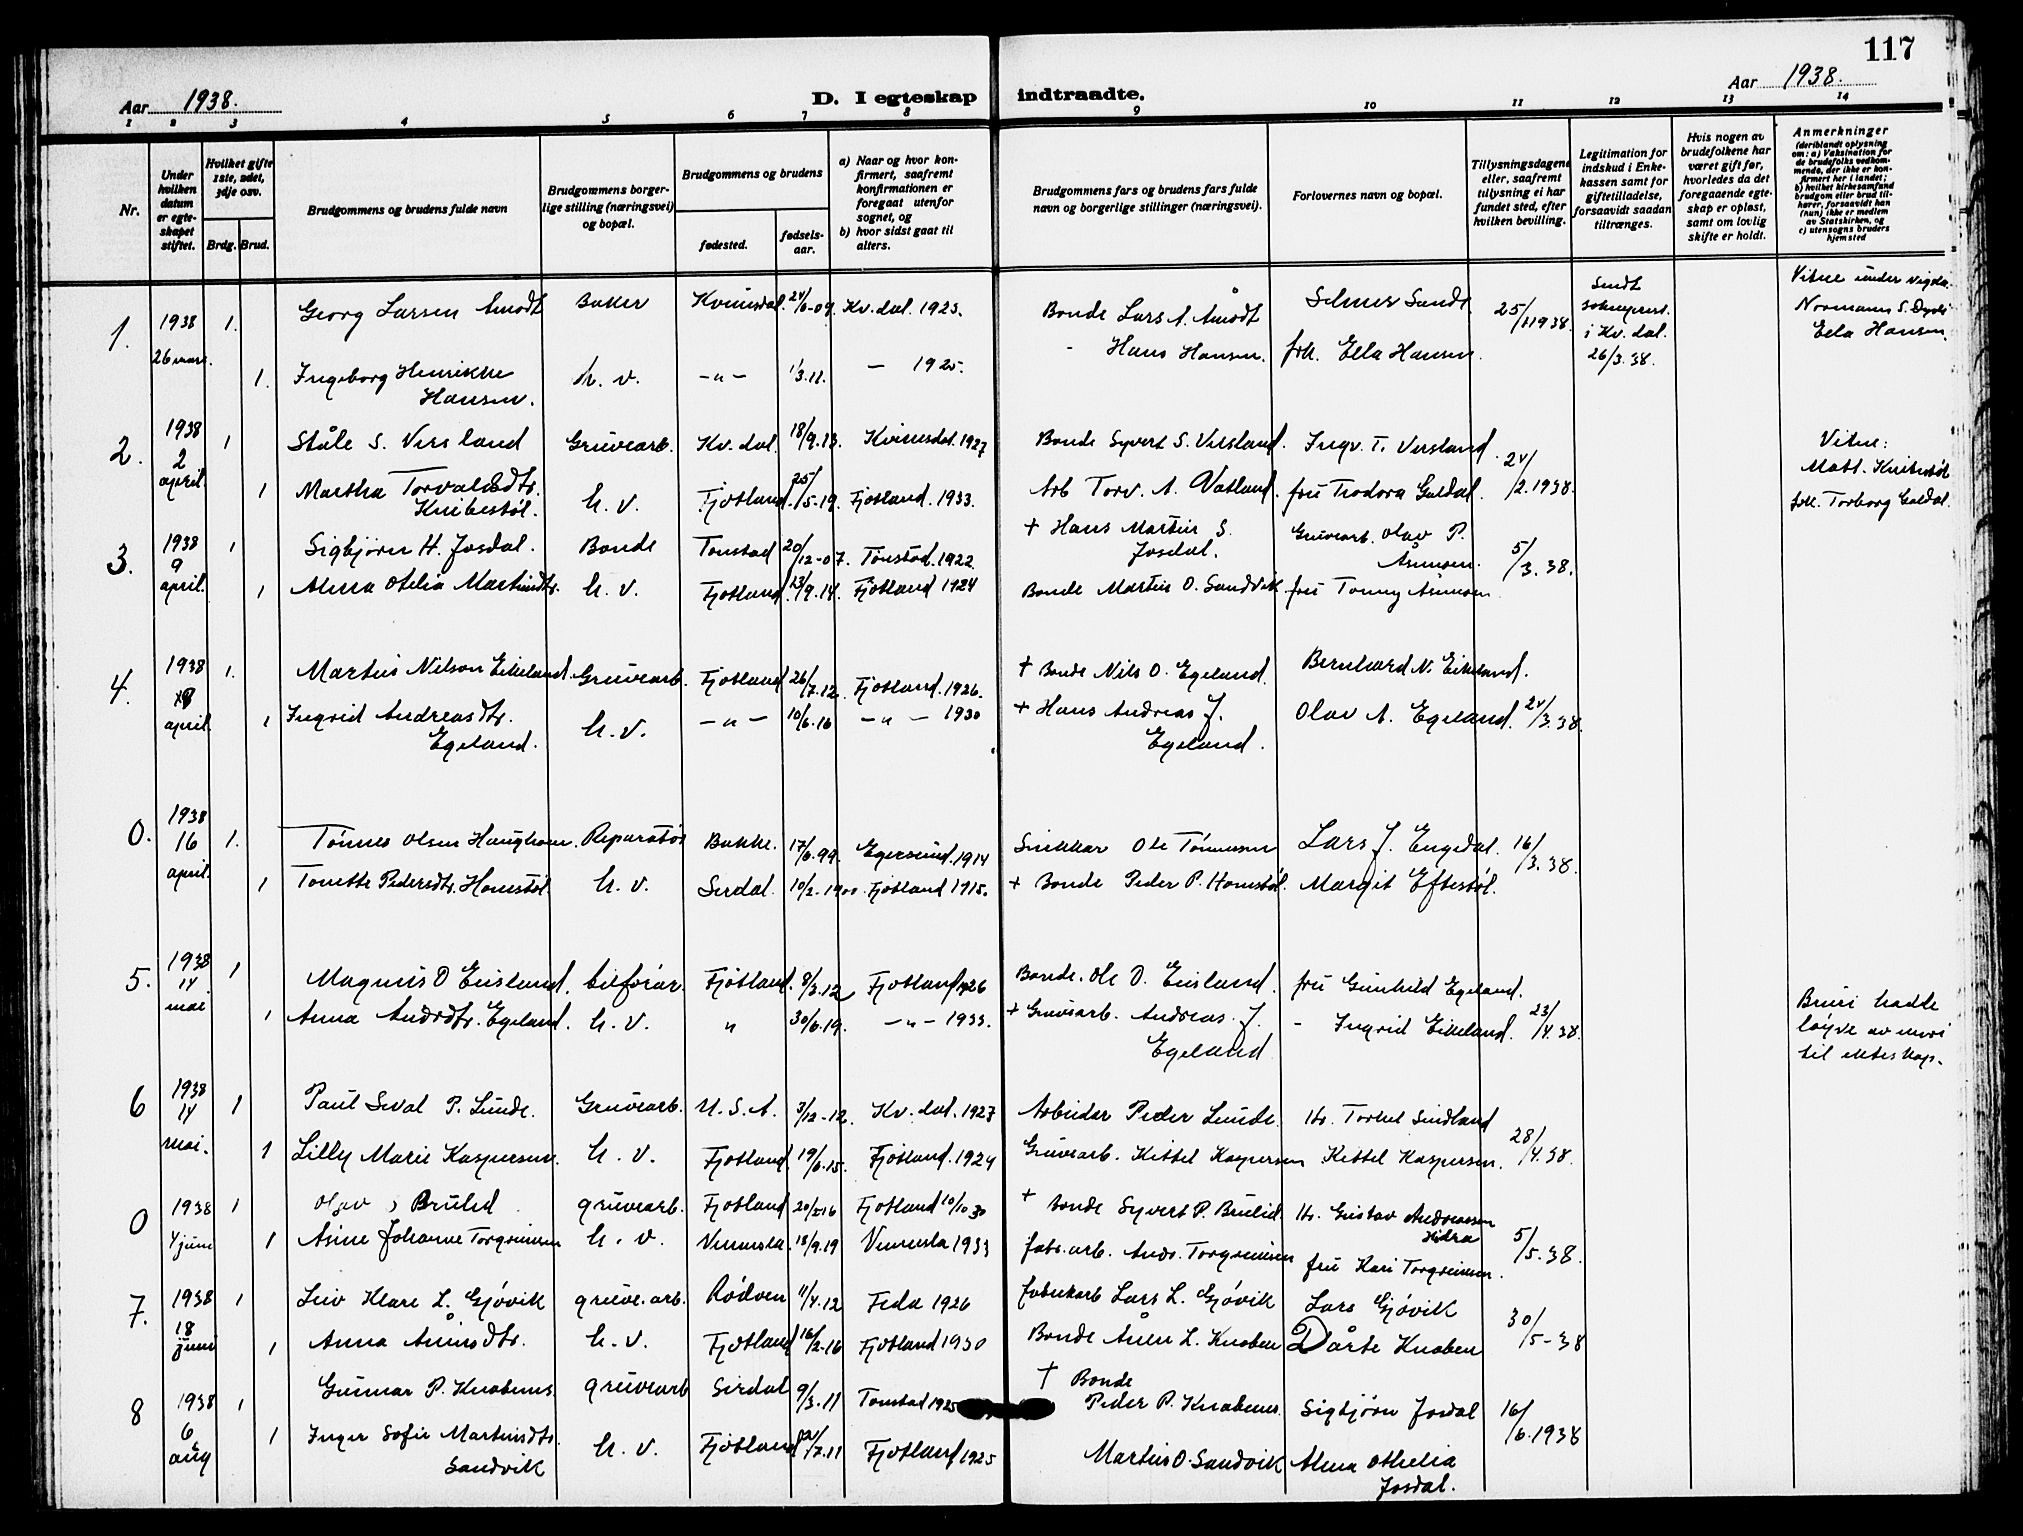 117
Aar 1938.
D. I egteskap indtraadte.
Aar 1938.
1 2 3 4 5 6 7 8 9 10 11 12 13 14
Nr.
Under hvilken datum er egteskapet stiftet.
Hvilket gifte 1ste, 2det, 3dje osv.
Brdg. Brud.
Brudgommens og brudens fulde navn
Brudgommens borgerlige stilling (næringsvei) og bopæl.
Brudgommens og brudens
fødested.
fødselsaar.
a) Naar og hvor konfirmert, saafremt konfirmationen er foregaat utenfor sognet, og
b) hvor sidst gaat til alters.
Brudgommens fars og brudens fars fulde navn og borgerlige stillinger (næringsvei).
Forlovernes navn og bopæl.
Tillysningsdagene eller, saafremt tillysning ei har fundet sted, efter hvilken bevilling.
Legitimation for indskud i Enkekassen samt for giftetilladelse, forsaavidt saadan tiltrænges.
Hvis nogen av brudefolkene har været gift før, hvorledes da det foregaaende egteskap er opløst, samt om lovlig skifte er holdt.
Anmerkninger
(deriblandt oplysning om: a) Vaksination for de brudefolks vedkommende, der ikke er konfirmert her i landet;
b) hvilket kirkesamfund brudgom eller brud tilhører, forsaavidt han (hun) ikke er medlem av Statskirken, og
c) utensogns bruders hjemsted
1. 1938 26 mars. 1. Georg Larsen Åmodt Baker Kvinesdal 24/6-09. Kv.dal. 1923. Bonde Lars A. Åmodt Selmer Sande 25/1 1938. Sendt sokneprest. i Kv.dal. 26/3.38.
1. Ingeborg Henrikke Hansen. h.v. -"- 1/3.11. - 1925. - Hans Hansen. frk. Ella Hansen. Ella Hansen.
2. 1938 2 april. 1 Ståle S. Versland Gruvearb. Kv.dal. 18/9.13. Kvinesdal. 1927 Bonde Syvert S. Versland. Ingv. T. Versland 24/2.1938. Vitne:
1 Martha Torvaldsdtr. Knibestøl. h.v. Fjotland. 25/5-19. Fjotland. 1933. Arb Torv. A. Vatland. fru Teodora Galdal. frk. Torborg Galdal.
3. 1938 9 april. 1 Sigbjørn H. Josdal. Bonde Tonstad 20/12-07. Tonstad. 1922 + Hans Martin S. Josdal. Gruvearb. Olav P. Åsmosen. 5/3.38.
1 Alma Otelia Martinsdtr. h.v. Fjotland. 13/9.14. Fjotland 1924 Bonde Martin O. Sandvik fru Tonny Åsmosen
4. 1938 april. 1. Martin Nilson Eikeland Gruvearb. Fjotland 26/7.12. Fjotland. 1926. + Bonde Nils O. Egeland. Bernhard N. Eikeland. 24/3.38.
1 Ingrid Andreasdtr. Egeland. h.v. -"- 10/6.16 -"- 1930 + Hans Andreas J. Egeland. Olav A. Egeland.
0. 1938 16 april. 1. Tønnes Olsen Haughom. Reparatør Bakke. 17/6.99. Egersund. 1914 Snekkar Ole Tønnessen Lars J. Engedal. 16/3.38.
1 Tonette Pedersdtr. Homstøl. h.v. Sirdal. 10/2.1900. Fjotland 1915. + Bonde Peder P. Homstøl. Margit Eftestøl.
5. 1938 14 mai 1 Magnus O Eiesland. bilførar. Fjotland. 8/3.12 Fjotland 1926 Bonde. Ole O. Eiesland. fru Gunhild Egeland. 23/4.38.
1 Anna Andrdtr. Egeland. h.v. " 30/6.19. -"- 1933. + Gruvearb. Andreas J. Egeland - Ingrid Eikeland. Brura hadde løyve av mori til ekteskap.
6 1938 14 mai. 1 Paul Seval P. Lunde. Gruvearb. U.S.A. 3/12-12. Kv.dal. 1927 Arbeidar Peder Lunde. Hr. Torkel Sindland 28/4.38.
1 Lilly Marie Kaspersen. h.v. Fjotland. 19/6.15. Fjotland. 1924 Gruvearb. Kittel Kaspersen Kittel Kaspersen.
0 1938 4 juni 1 Olav S Brulid gruvearb. Fjotland 20/5 16 Fjotland 10/10 30 + Bonde Syvert P. Brulid. Hr. Gustav Andreassen Hidra 5/5.38.
1 Asine Johanne Torgrimsen h.v. Vennesla 18/9.19 Vennesla 1933 fabr.arb. Andr. Torgrimsen fru Kari Torgrimsen.
7. 1938 18 juni 1 Leiv Klare L. Gjøvik gruve.arb. Rødven 11/4.12 Feda 1926 fabrikarb Lars L. Gjøvik Lars Gjøvik 30/5-38
1 Anna Ånensdtr. h.v. Fjotland 16/2-16 Fjotland 1930 Bonde Ånen L. Knaben Dårte Knaben
8 1938 6 aug 1 Gunnar P. Knabenes gruvearb Sirdal 9/3.11 Tonstad 1925 + Bonde Peder P. Knabenes. Sigbjørn Josdal 16/6.1938
1 Inger Sofie Martinsdtr. Sandvik h.v. Fjotland Fjotland 1925 Martin O. Sandvik Alma Othelia Josdal.